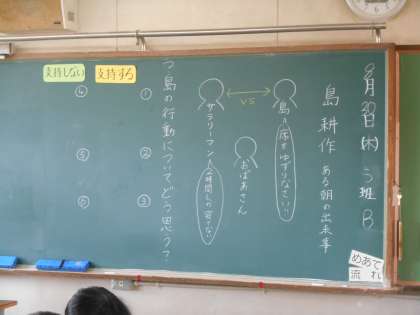 8月20日(木) 5班B
島耕作 ある朝の出来事
島=席をゆずりなさい!!
VS
おばあさん
サラリーマン
島の行動についてどう思う?
支持する
支持しない
①
②
③
④
⑤
⑥
めあて
流れ